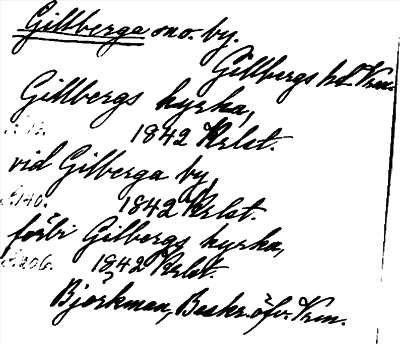 Gillberga sno. by.
Gillbergs hd Vrm.
Gillbergs kyrka,
1842 Krlst.
vid Gilberga by,
s. 140. 1842 Krlst.
förbi Gilbergs kyrka,
s. 206. 1842 Krlst.
Bjorkman, Beskr. öfv. Vrm.